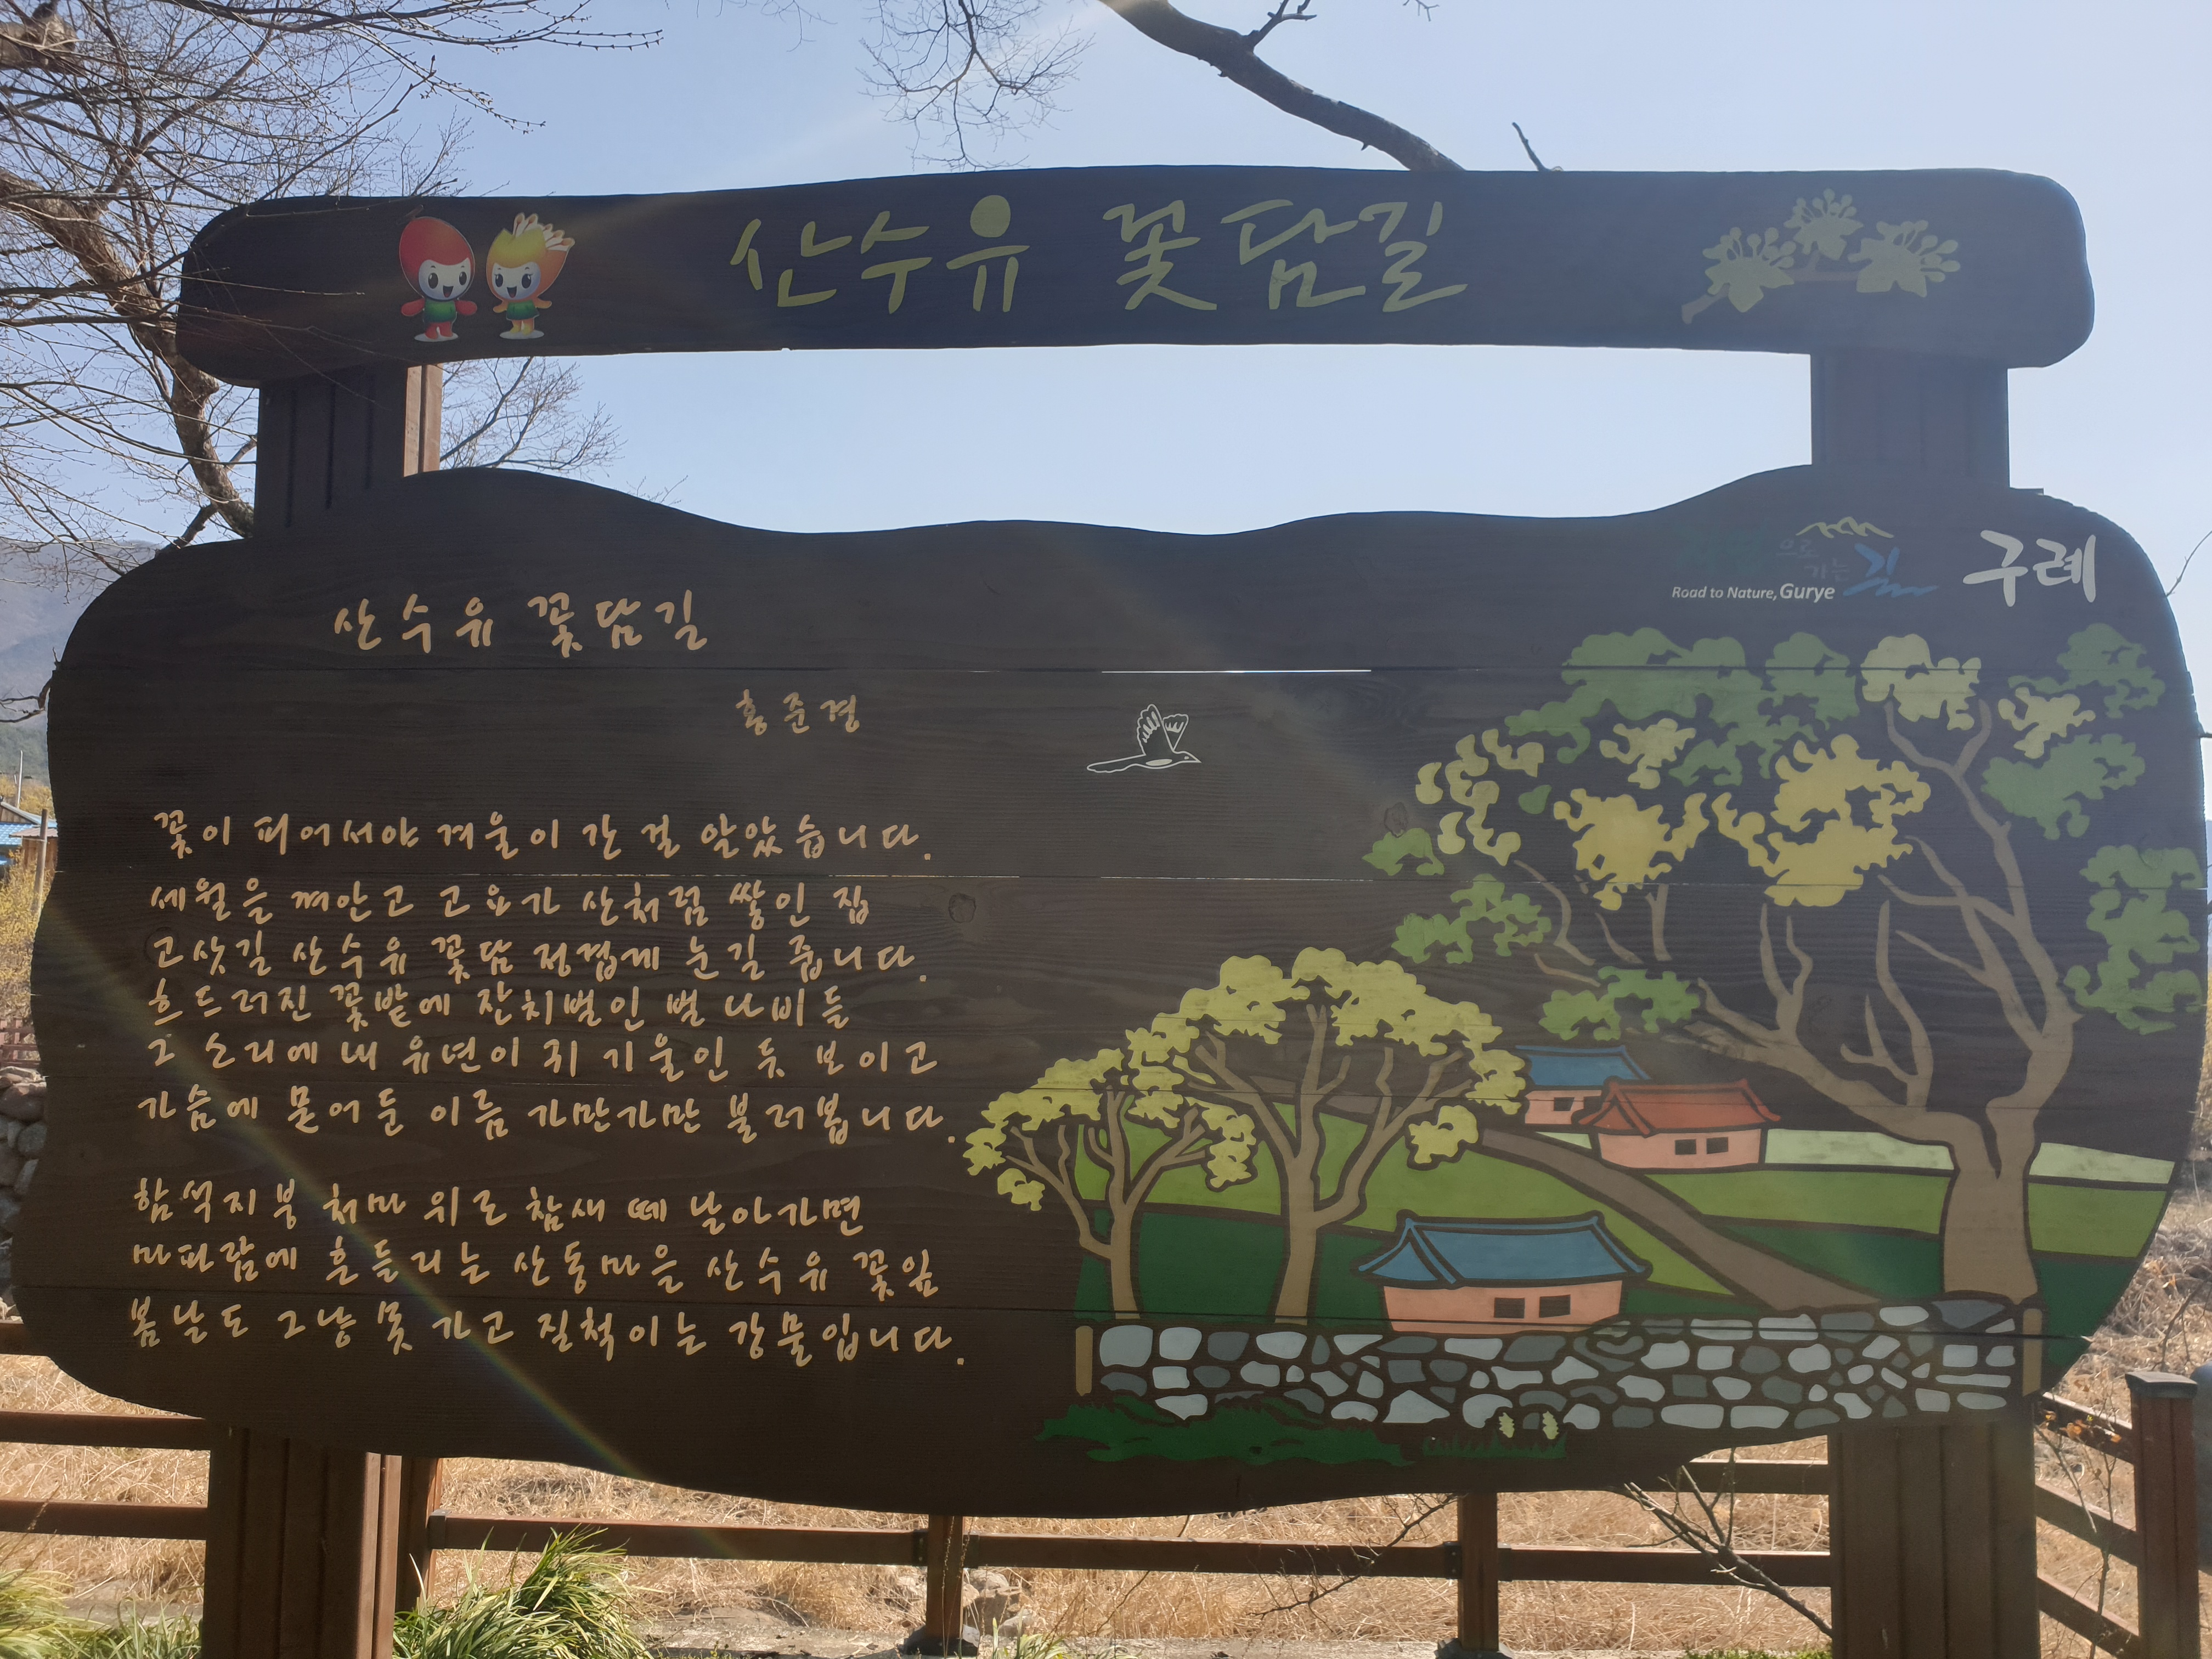 산수유 꽃담길
으로
가는 길
Road to Nature, Gurye
구례
산수유 꽃담길
홍준경
꽃이 피어서야 겨울이 간 걸 알았습니다.
세월을 껴안고 고요가 산처럼 쌓인 집
고샅길 산수유 꽃담 정겹게 눈길 줍니다.
흐드러진 꽃밭에 잔치벌인 벌 나비들
그 소리에 내 유년이 귀 기울인 듯 보이고
가슴에 묻어둔 이름 가만가만 불러봅니다.
함석지붕 처마 위로 참새 떼 날아가면
마파람에 흔들리는 산동마을 산수유 꽃잎
봄날도 그냥 못 가고 질척이는 강물입니다.